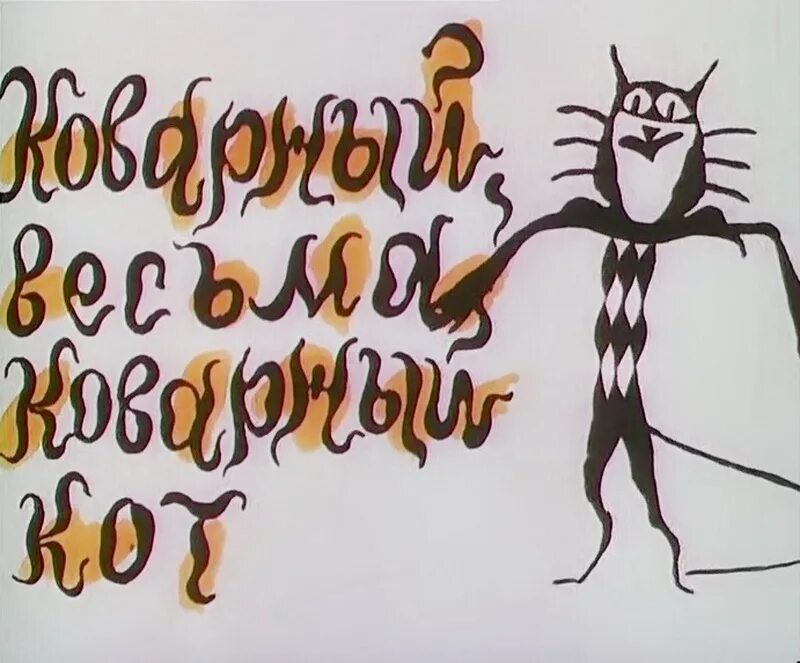 Коварный,
весьма,
Коварный
кот